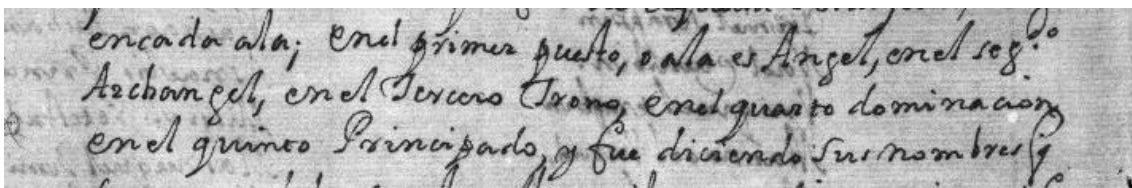 encada ala; enel primer puesto, o ala es Angel, enel seg.do
Archangel, en el Tercero Trono, enel quarto dominacion
en el quinto Principado, y fue diciendo sus nombres q